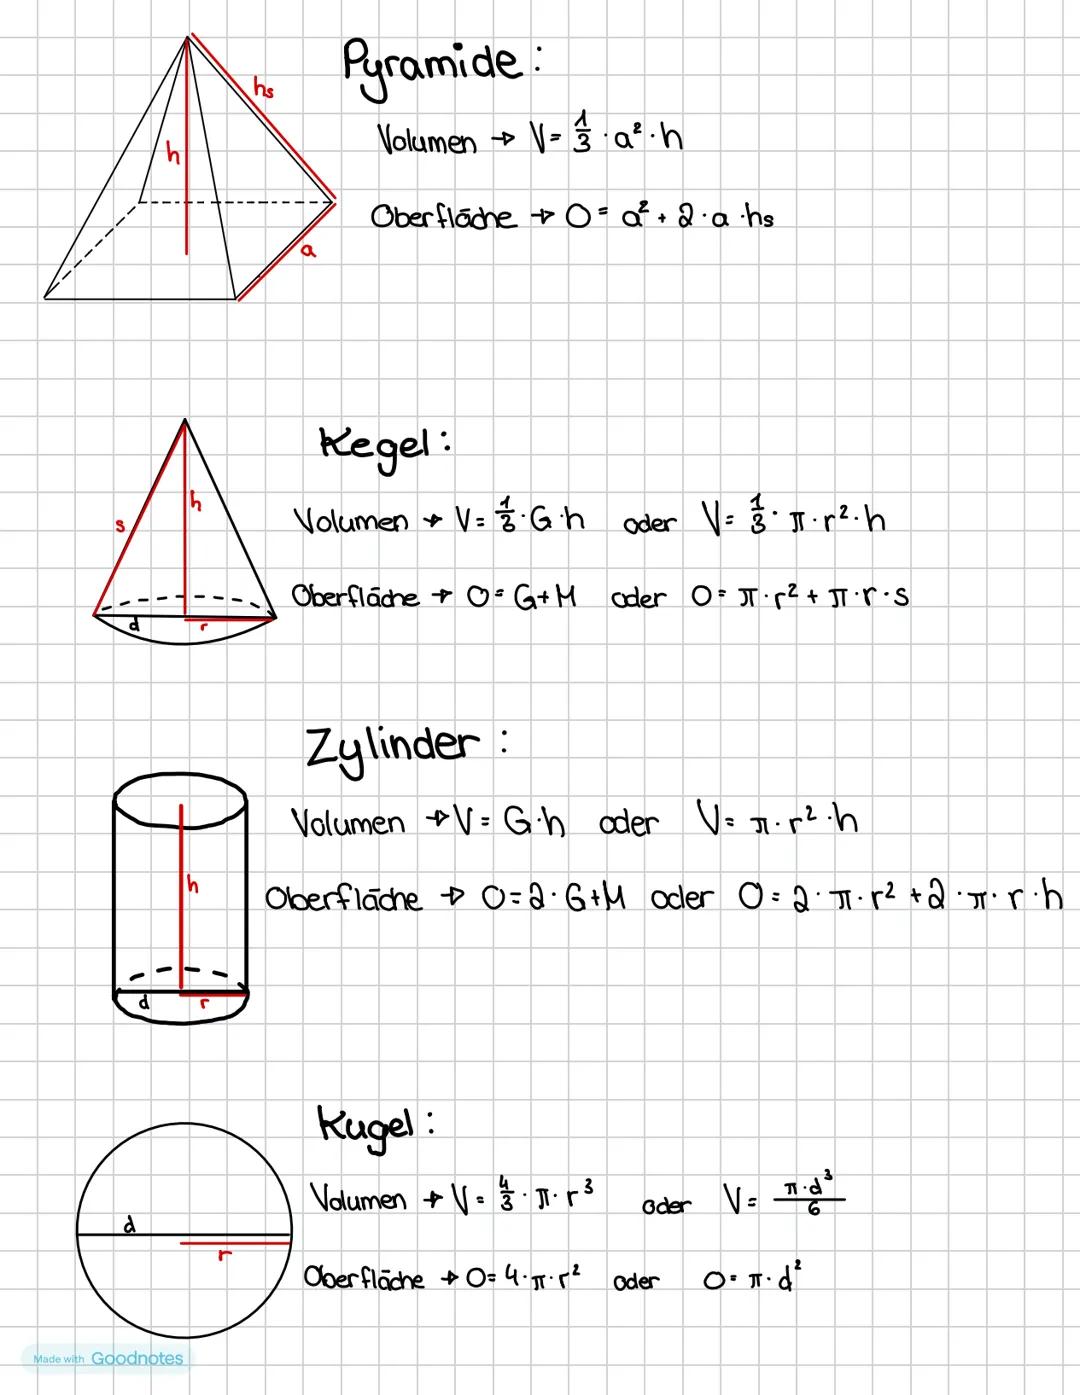 Pyramide:
hs
h
a
Volumen → V = 1/3 · a² · h
Oberfläche → O = a² + 2 · a · hs
Kegel:
s
h
d
r
Volumen → V = 1/3 · G · h oder V = 1/3 · π · r² · h
Oberfläche → O = G + M oder O = π · r² + π · r · s
Zylinder:
h
d
r
Volumen → V = G · h oder V = π · r² · h
Oberfläche → O = 2 · G + M oder O = 2 · π · r² + 2 · π · r · h
Kugel:
d
r
Volumen → V = 4/3 · π · r³ oder V = π · d³ / 6
Oberfläche → O = 4 · π · r² oder O = π · d²
Made with Goodnotes